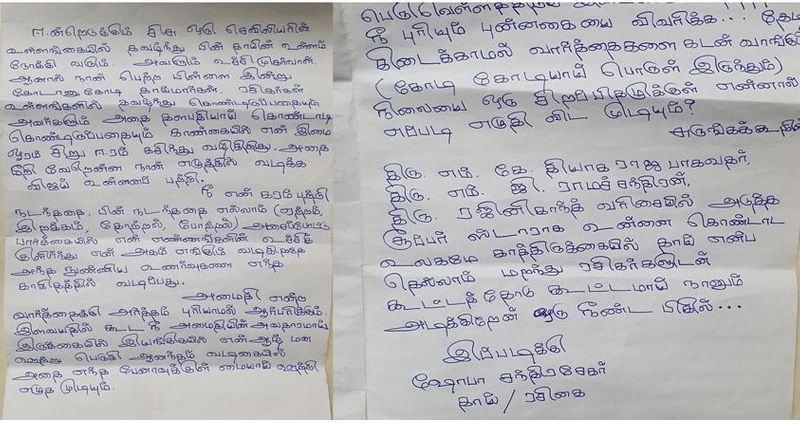 ஈன்றெடுக்கும் சிசு ஒரு செவிலியரின்
உள்ளங்கையில் தவழ்ந்து பின் தாயின் உள்ளம்
நோக்கி வரும் அவளும் உச்சி முகர்வாள்.
ஆனால் நான் பெற்ற பிள்ளை இன்று
கோடானுகோடி தாய்மார்கள், ரசிகர்கள்
உள்ளங்களில் தவழ்ந்து கொண்டிருப்பதையும்
அவர்களும் அதை தளபதியாய் கொண்டாடி
கொண்டிருப்பதையும் காண்கையில் என் இமை
ஓரம் சிறு ஈரம் கசிந்து வழிகிறது. அதை
வேறென்ன நான் எழுத்தில் வடிக்க
விஜய் உன்னைப் பற்றி.
நீ என் கரம்பற்றி
நடந்ததை, பின் நடந்ததை எல்லாம் (ஏற்றம்,
இறக்கம், தோற்றல், போற்றல்)
பார்க்கையில் என் எண்ணங்களின் உச்சி
குளிர்ந்து என் அகம் எங்கும் வடிகிறதே
அந்த நுண்ணிய உணர்வுகளை எந்த
காகிதத்தில் வடிப்பது.
அமைதி என்ற
வார்த்தைக்கு அர்த்தம் புரியாமல் ஆர்ப்பரிக்கும்
இளவயதில் கூட நீ அமைதியின் அவதாரமாய்
இருக்கையில் இயங்குகையில் என் ஆழ் மன
ஊற்று பெருகி ஆனந்தம் வடிகையில்
அதை எந்த பேனாவுக்குள் மையாய் ஊற்றி
எழுத முடியும்.
நீ புரியும் புன்னகையை விவரிக்க...
கிடைக்காமல் வார்த்தைகளை கடன் வாங்கி
(கோடி கோடியாய் பொருள் இருந்தும்)
நிலையை ஒரு சிறப்பிதழுக்குள் என்னால்
எப்படி எழுதி விட முடியும்?
சுருங்கக்கூறின்
திரு. எம். கே. தியாகராஜ பாகவதர்,
திரு. எம். ஜி. ராமச்சந்திரன்,
திரு. ரஜினிகாந்த் வரிசையில் அடுத்த
சூப்பர் ஸ்டாராக உன்னை கொண்டாட
உலகமே காத்திருக்கையில் தாய் என்ப
தெல்லாம் மறந்து ரசிகர்களுடன்
கூட்டத்தோடு கூட்டமாய் நானும்
அடிக்கிறேன் ஒரு நீண்ட விசில்...
இப்படிக்கு
ஷோபா சந்திரசேகர்
தாய் / ரசிகை